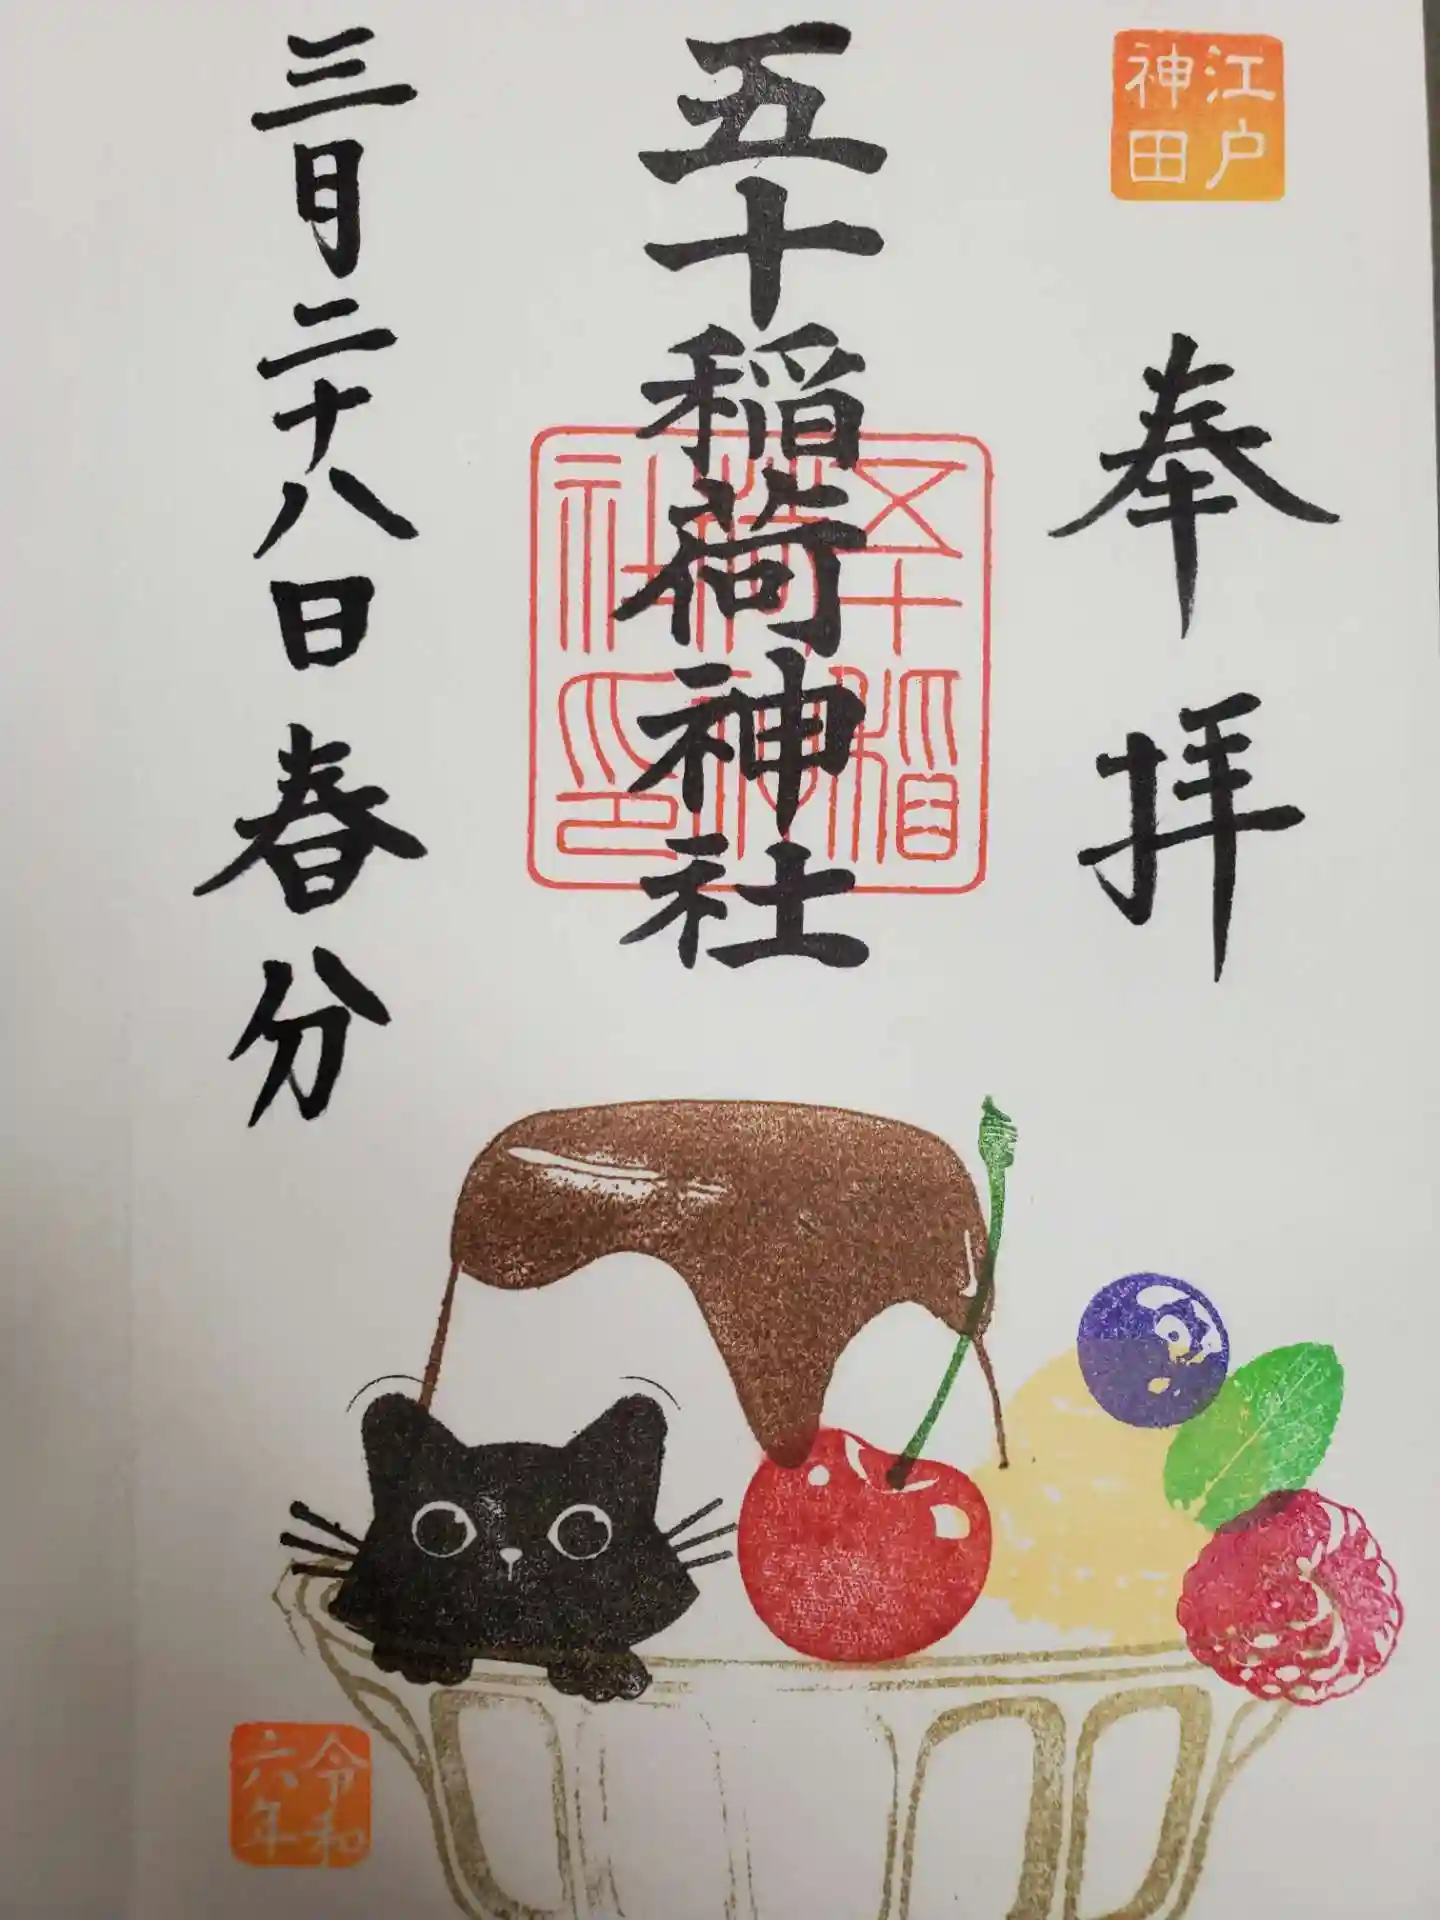 江戸
神田
奉拝
五十稲荷神社
五十稲
荷神
社印
三月二十八日春分
令和
六年